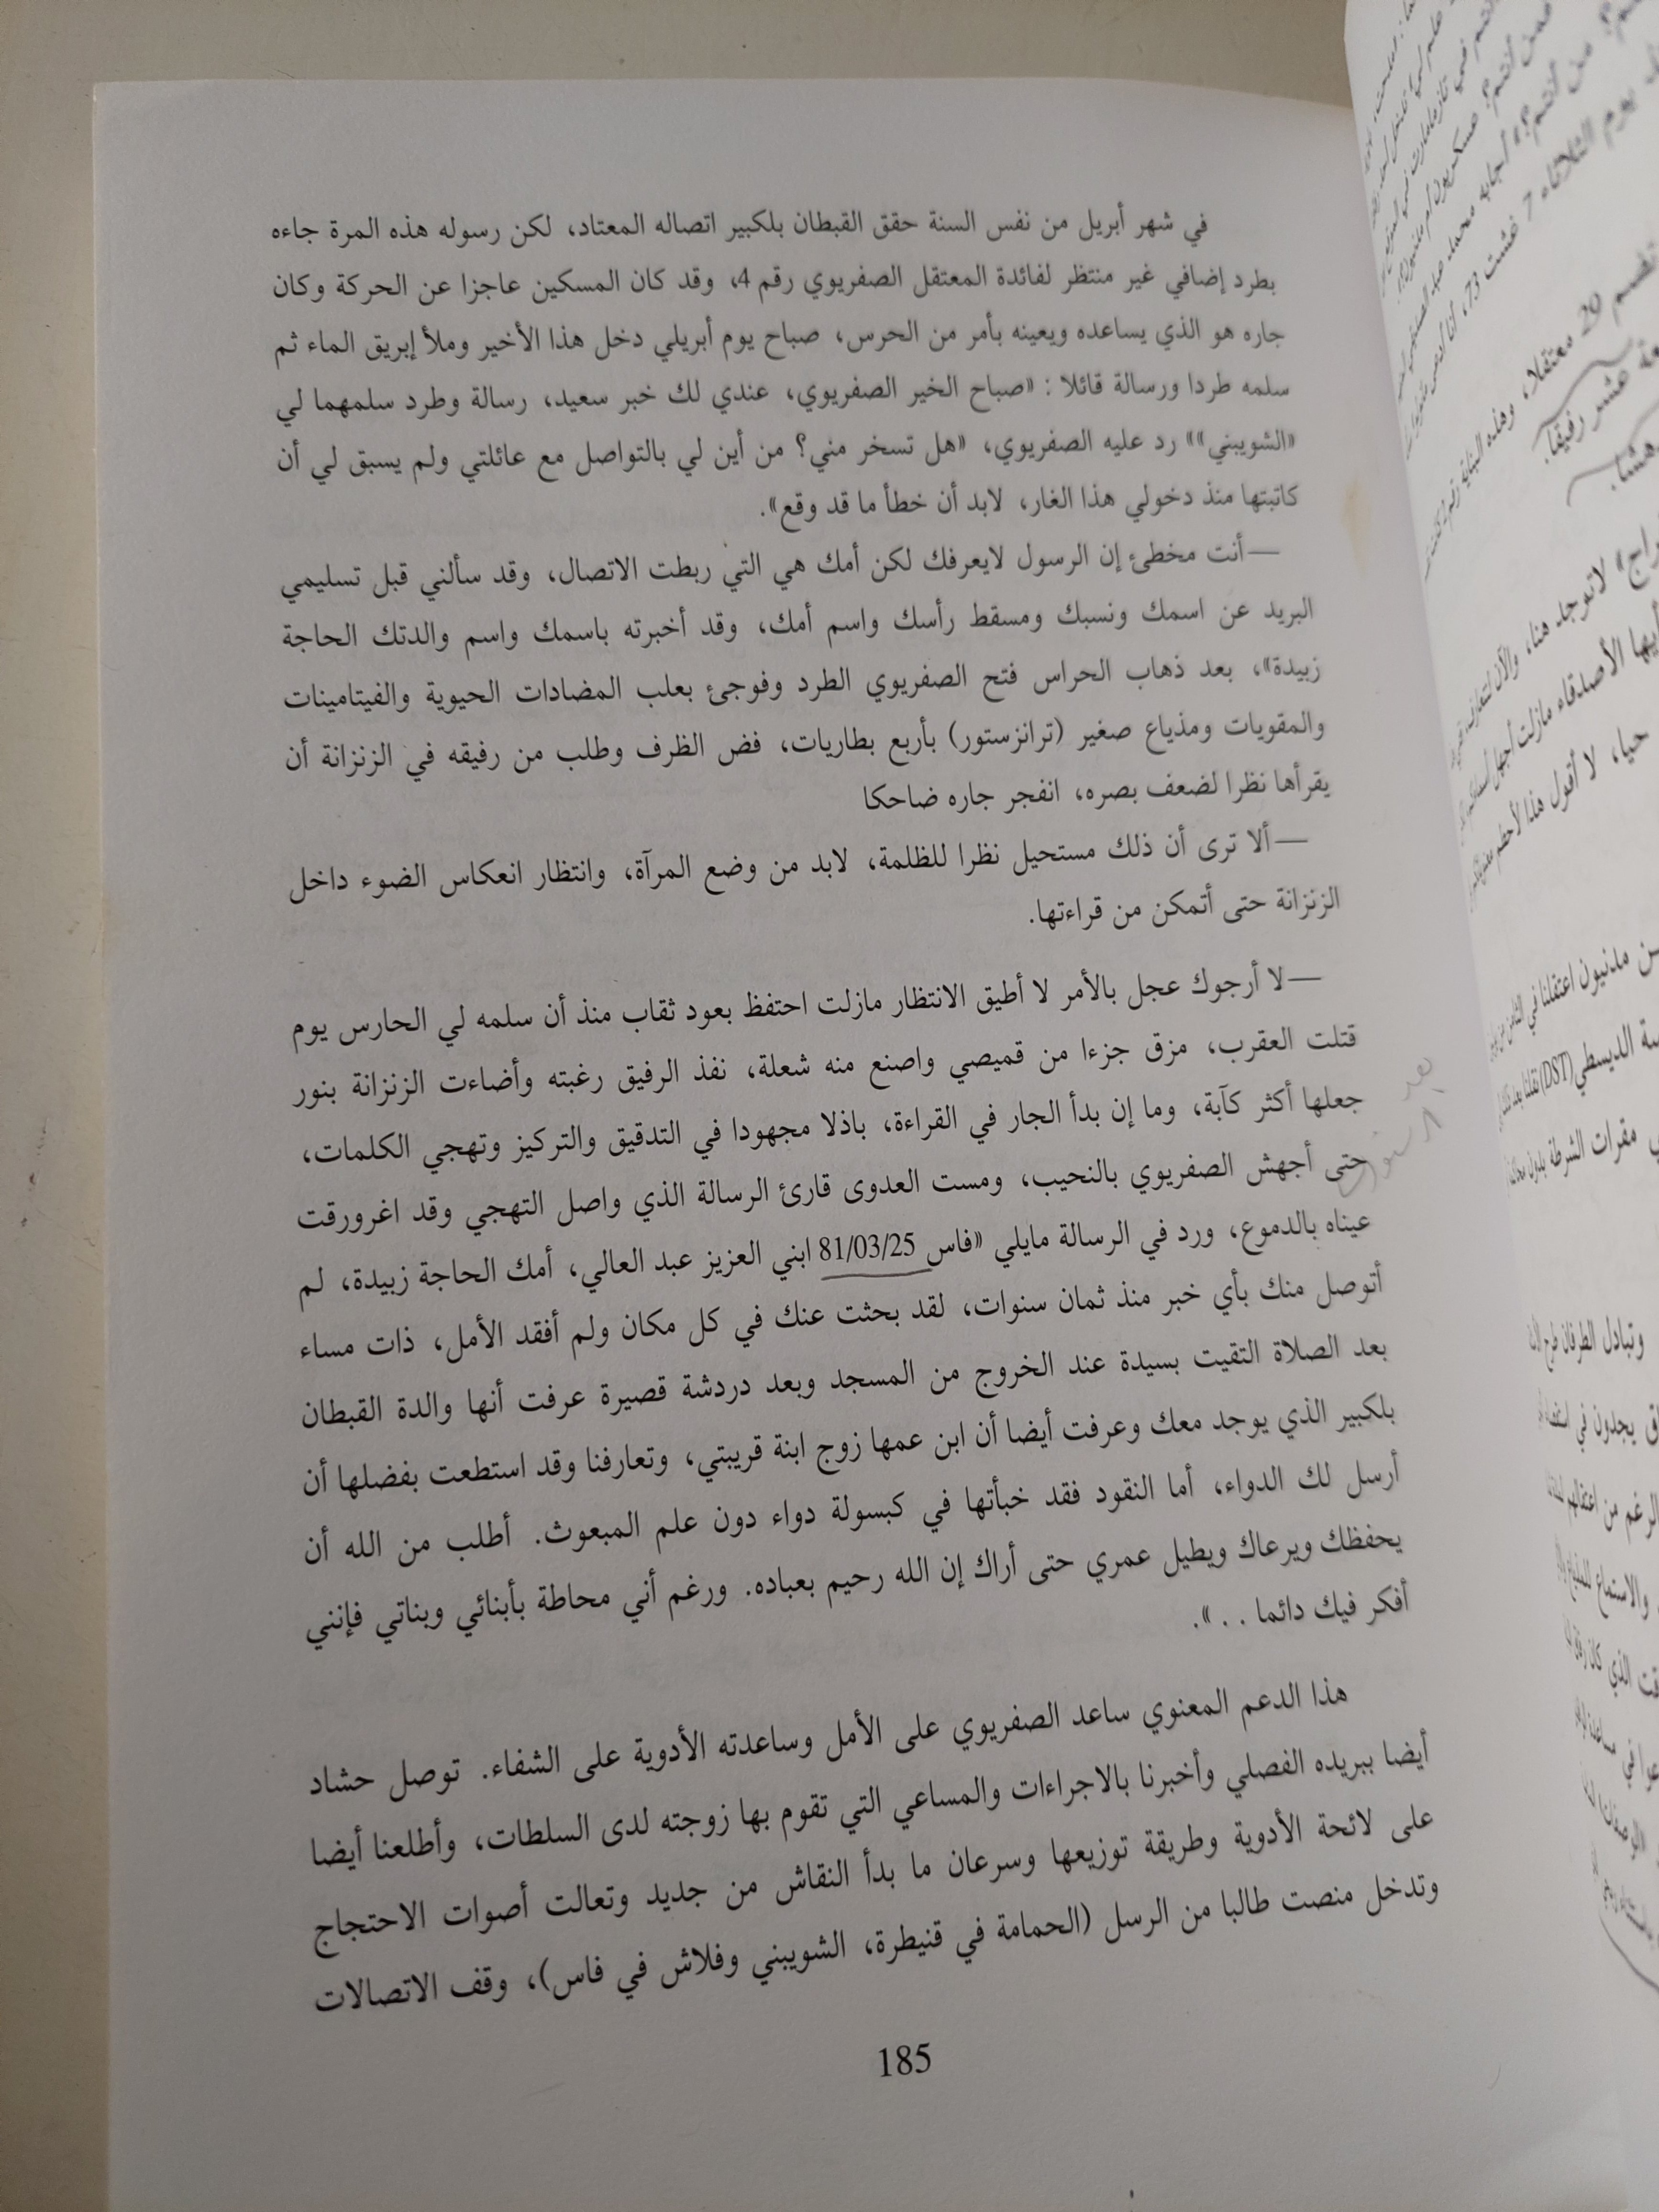 في شهر أبريل من نفس السنة حقق القبطان بلكبير اتصاله المعتاد، لكن رسوله هذه المرة جاءه
بطرد إضافي غير منتظر لفائدة المعتقل الصفريوي رقم 4، وقد كان المسكين عاجزا عن الحركة وكان
جاره هو الذي يساعده ويعينه بأمر من الحرس، صباح يوم أبريلي دخل هذا الأخير وملأ إبريق الماء ثم
سلمه طردا ورسالة قائلا : «صباح الخير الصفريوي، عندي لك خبر سعيد، رسالة وطرد سلمهما لي
«الشويبني»» رد عليه الصفريوي، «هل تسخر مني؟ من أين لي بالتواصل مع عائلتي ولم يسبق لي أن
كاتبتها منذ دخولي هذا الغار، لابد أن خطأ ما قد وقع».
—أنت مخطئ إن الرسول لايعرفك لكن أمك هي التي ربطت الاتصال، وقد سألني قبل تسليمي
البريد عن اسمك ونسبك ومسقط رأسك واسم أمك، وقد أخبرته باسمك واسم والدتك الحاجة
زبيدة»، بعد ذهاب الحراس فتح الصفريوي الطرد وفوجئ بعلب المضادات الحيوية والفيتامينات
والمقويات ومذياع صغير (ترانزستور) بأربع بطاريات، فض الظرف وطلب من رفيقه في الزنزانة أن
يقرأها نظرا لضعف بصره، انفجر جاره ضاحكا
—ألا ترى أن ذلك مستحيل نظرا للظلمة، لابد من وضع المرآة، وانتظار انعكاس الضوء داخل
الزنزانة حتى أتمكن من قراءتها.
—لا أرجوك عجل بالأمر لا أطيق الانتظار مازلت احتفظ بعود ثقاب منذ أن سلمه لي الحارس يوم
قتلت العقرب، مزق جزءا من قميصي واصنع منه شعلة، نفذ الرفيق رغبته وأضاءت الزنزانة بنور
جعلها أكثر كآبة، وما إن بدأ الجار في القراءة، باذلا مجهودا في التدقيق والتركيز وتهجي الكلمات،
حتى أجهش الصفريوي بالنحيب، ومست العدوى قارئ الرسالة الذي واصل التهجي وقد اغرورقت
عيناه بالدموع، ورد في الرسالة مايلي «فاس 81/03/25 ابني العزيز عبد العالي، أمك الحاجة زبيدة، لم
أتوصل منك بأي خبر منذ ثمان سنوات، لقد بحثت عنك في كل مكان ولم أفقد الأمل، ذات مساء
بعد الصلاة التقيت بسيدة عند الخروج من المسجد وبعد دردشة قصيرة عرفت أنها والدة القبطان
بلكبير الذي يوجد معك وعرفت أيضا أن ابن عمها زوج ابنة قريبتي، وتعارفنا وقد استطعت بفضلها أن
أرسل لك الدواء، أما النقود فقد خبأتها في كبسولة دواء دون علم المبعوث. أطلب من الله أن
يحفظك ويرعاك ويطيل عمري حتى أراك إن الله رحيم بعباده. ورغم أني محاطة بأبنائي وبناتي فإنني
أفكر فيك دائما . . ».
هذا الدعم المعنوي ساعد الصفريوي على الأمل وساعدته الأدوية على الشفاء. توصل حشاد
أيضا ببريده الفصلي وأخبرنا بالاجراءات والمساعي التي تقوم بها زوجته لدى السلطات، وأطلعنا أيضا
على لائحة الأدوية وطريقة توزيعها وسرعان ما بدأ النقاش من جديد وتعالت أصوات الاحتجاج
وتدخل منصت طالبا من الرسل (الحمامة في قنيطرة، الشويبني وفلاش في فاس)، وقف الاتصالات
185
يوم الثلاثاء 7 غشت 73،
29 معتقلا، وهذه البناية رقم
عشر رفيقا.
لاتوجد هنا، والآن
أيها الأصدقاء مازلت أجهل
حيا، لا أقول هذا لأحطم
مدنيون اعتقلنا في
الديسطي (DST)
مقرات الشرطة بدون
وتبادل الطرفان
يجدون في
الرغم من اعتقالهم
والاستماع
الذي كان